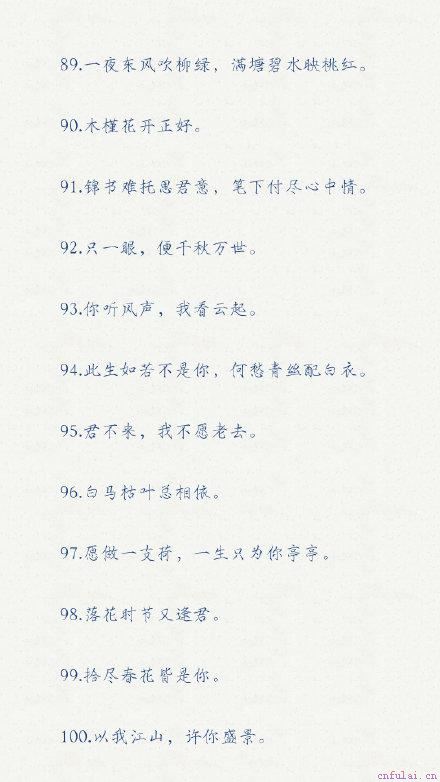 89.一夜东风吹柳绿，满塘碧水映桃红。
90.木槿花开正好。
91.锦书难托愚君意，笔下付尽心中情。
92.只一眼，便千秋万世。
93.你听风声，我看云起。
94.此生如若不是你，何愁青丝配白衣。
95.君不来，我不愿老去。
96.白马枯叶总相依。
97.愿做一支荷，一生只为你亭亭。
98.落花时节又逢君。
99.拾尽春花皆是你。
100.以我江山，许你盛景。
cnfulai.cn